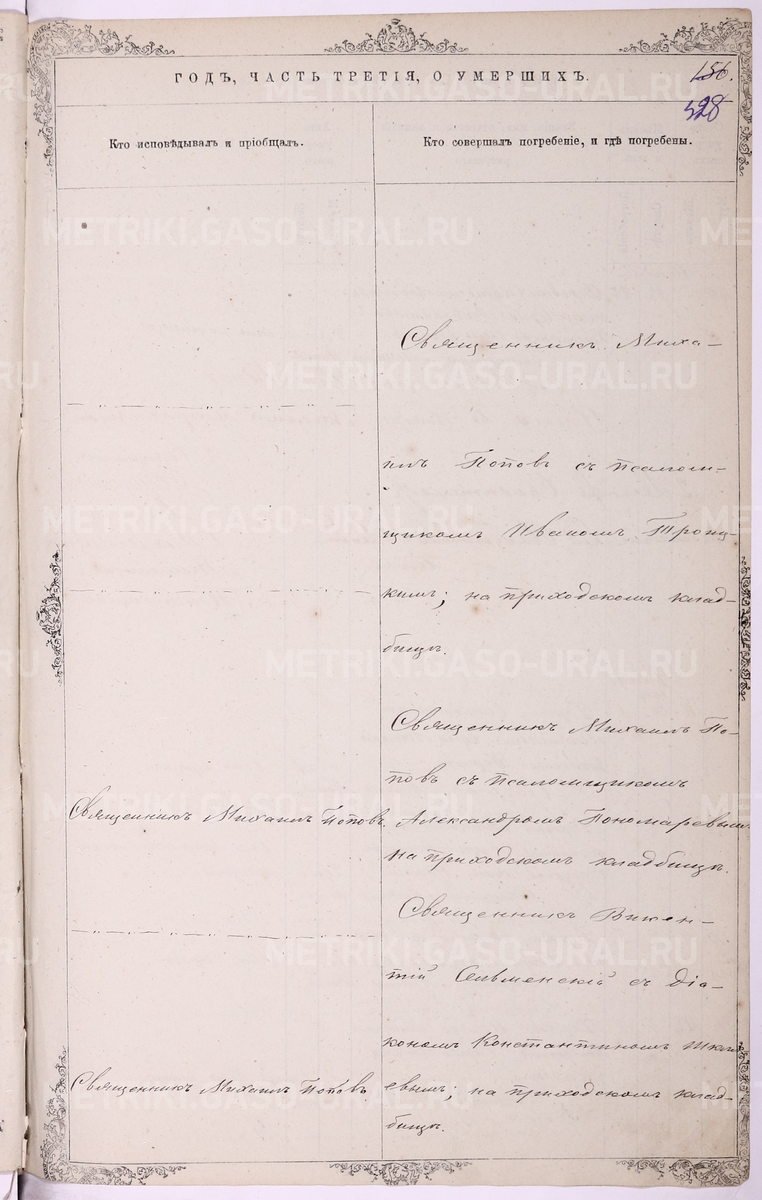 ГОДЪ, ЧАСТЬ ТРЕТІЯ, О УМЕРШИХЪ.
156.
328
Кто исповѣдывалъ и пріобщалъ.
Кто совершалъ погребеніе, и гдѣ погребены.
Священникъ Миха-
илъ Поповъ съ псалом-
щикомъ Иваномъ Троиц-
кимъ; на приходскомъ клад-
бищѣ.
Священникъ Михаилъ По-
повъ съ псаломщикомъ
Священникъ Михаилъ Поповъ.
Александромъ Пономаревымъ
на приходскомъ кладбищѣ.
Священникъ Викен-
тій Сельменскій съ діа-
кономъ Константиномъ
Священникъ Михаилъ Поповъ.
евымъ; на приходскомъ клад-
бищѣ.
METRIKI.GASO-URAL.RU